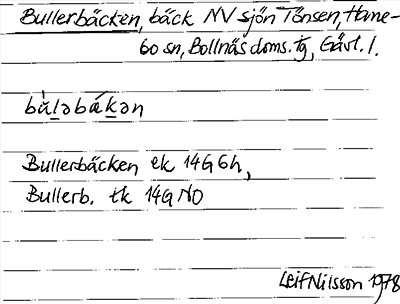 Bullerbäcken, bäck NV sjön Tönsen, Hane-
bo sn, Bollnäs doms. tg, Gävl. l.
bùləbákən
Bullerbäcken ek 14G6h,
Bullerb. tk 14G NO
Leif Nilsson 1978